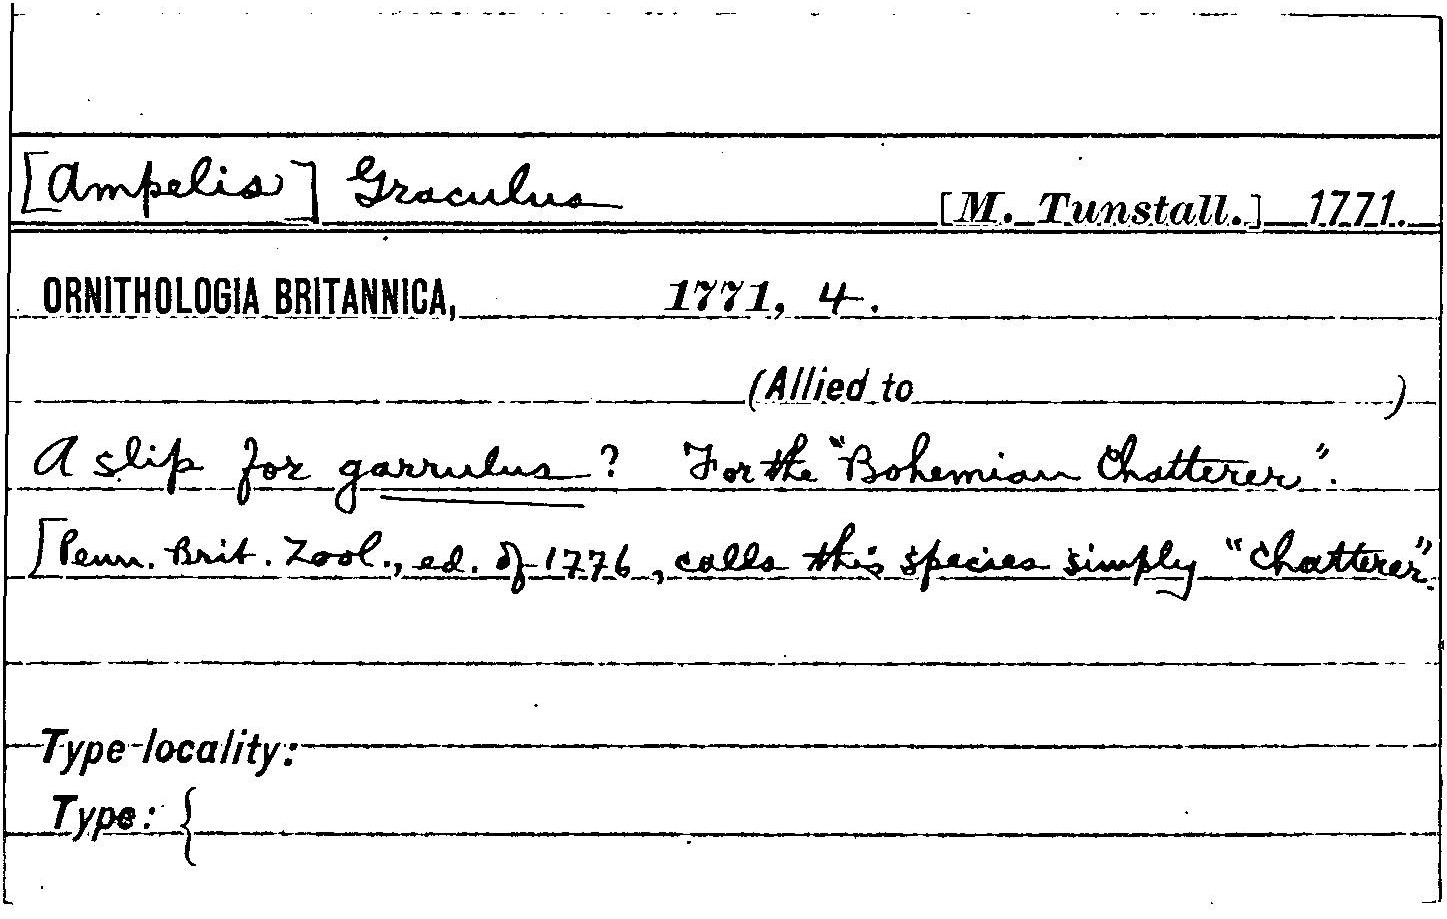 [Ampelis] Graculus [M. Tunstall.] 1771.
ORNITHOLOGIA BRITANNICA, 1771, 4.
(Allied to )
A slip for garrulus? For the "Bohemian Chatterer".
[Penn. Brit. Zool., ed. of 1776, calls this species simply "Chatterer".
Type locality:
Type: {